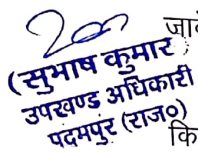 जा
(सुभाष कुमार)
उपखण्ड अधिकारी
पदमपुर (राज०)
कि